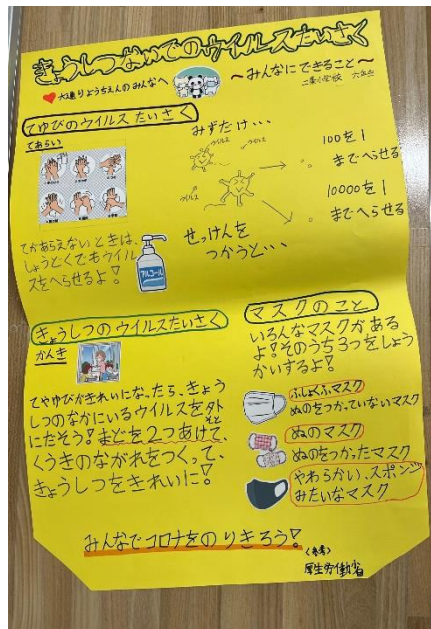 きょうしつなかでのウイルスたいさく
大通りようちえんのみんなへ
～みんなにできること～
二条小学校 六年生
てゆびのウイルス たいさく
てあらい
みずだけ・・・
ウイルス
ウイルス
100を1
までへらせる
ウイルス
ウイルス
10000を1
までへらせる
せっけんを
つかうと・・・
てがあらえないときは、
しょうどくでもウイル
スをへらせるよ!
アルコール
きょうしつのウイルスたいさく
かんき
てやゆびがきれいになったら、きょう
しつのなかにいるウイルスを外
そと
にだそう!まどを2つあけて、
くうきのながれをつくって、
きょうしつをきれいに!
マスクのこと
いろんなマスクがある
よ!そのうち3つをしょう
かいするよ!
ふしょくふマスク
ぬのをつかっていないマスク
ぬのマスク
ぬのをつかったマスク
やわらかい、スポンジ
みたいなマスク
みんなでコロナをのりきろう!
〈参考〉
厚生労働省